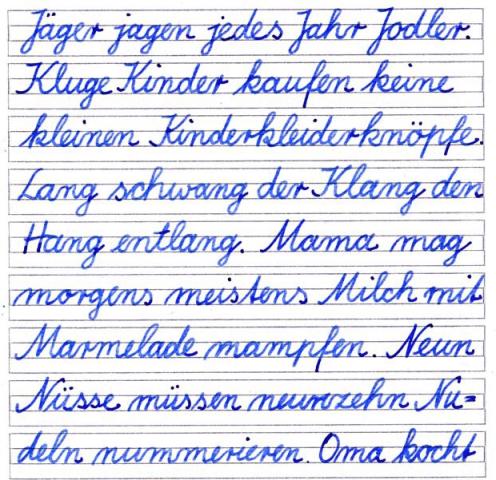 Jäger jagen jedes Jahr Jodler.
Kluge Kinder kaufen keine
kleinen Kinderkleiderknöpfe.
Lang schwang der Klang den
Hang entlang. Mama mag
morgens meistens Milch mit
Marmelade mampfen. Neun
Nüsse müssen neunzehn Nu=
deln nummerieren. Oma kocht